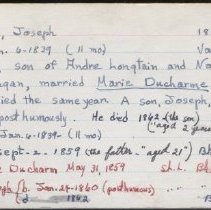 , Joseph 18
n. 6-1839 (11 mo) Na
son of Andre Longtain and Na
gan, married Marie Ducharme
ied the same year. A son, Joseph,
posthumously. He died 1842 (the son)
"aged 2 years
Jan. 6-1839- (11 mo)
Sept-2-1859 (the father-"aged 21") Bl
e Ducharm May 31, 1859 St. L. Bl
ph (b. Jan-24-1860 (posthumous)
(d 1842